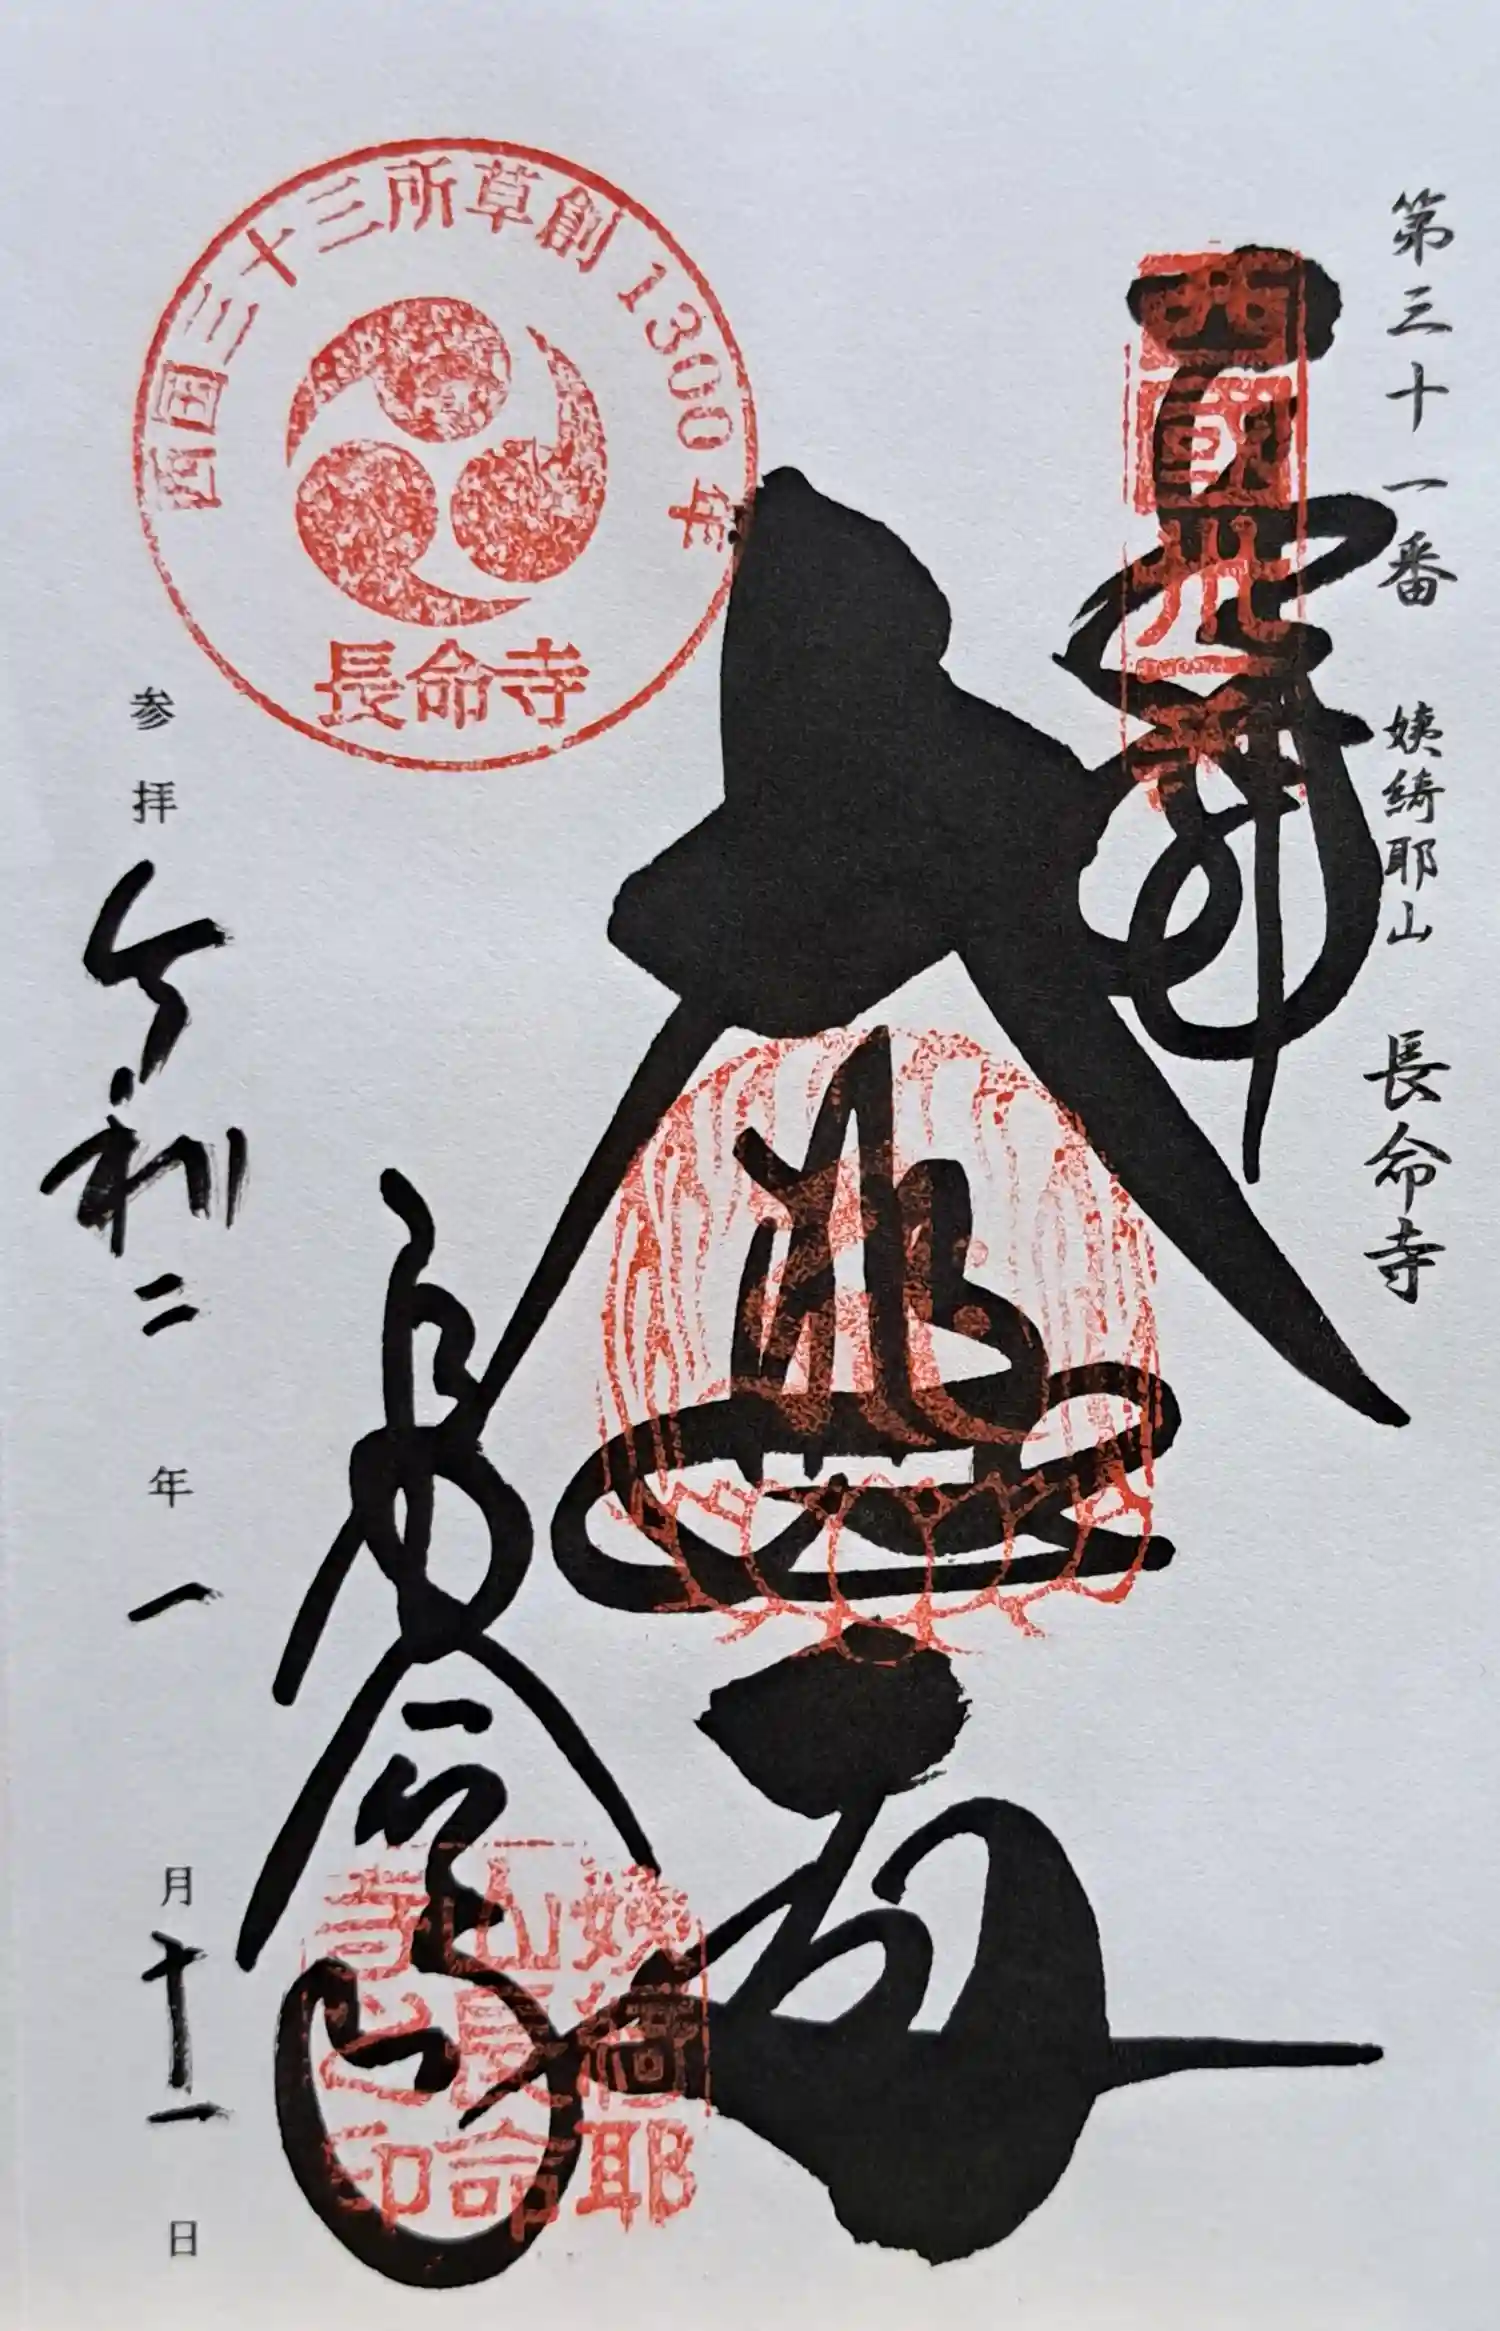 第三十一番 姨綺耶山 長命寺
西國卅一番
大悲
長命寺
姨綺耶
山長命
寺之印
西国三十三所草創1300年
長命寺
参拝 令和二年一月十一日